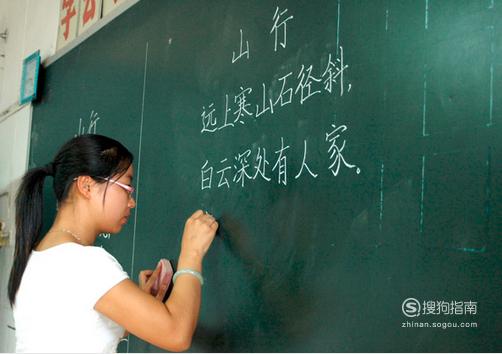 山行
山行
远上寒山石径斜,
白云深处有人家。
搜狗指南
zhinan.sogou.com